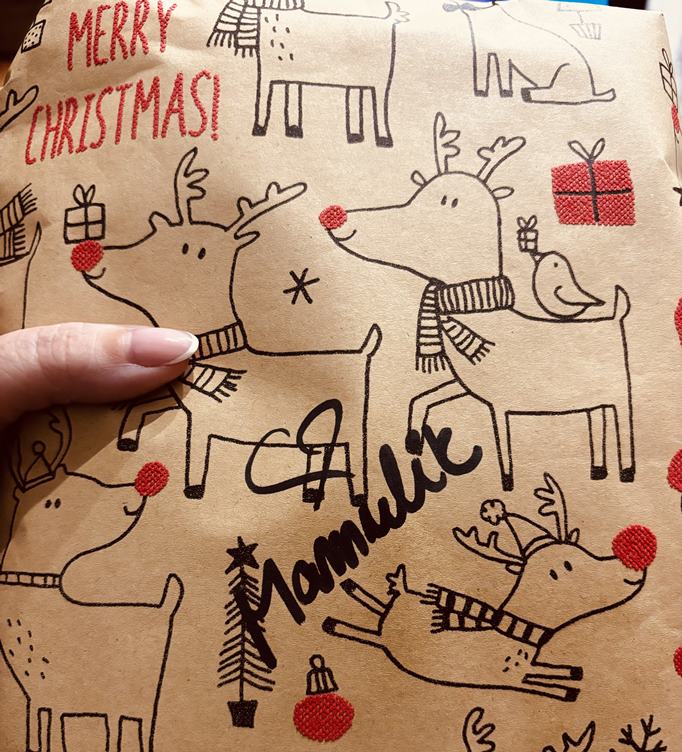 MERRY
CHRISTMAS!
Mamulik